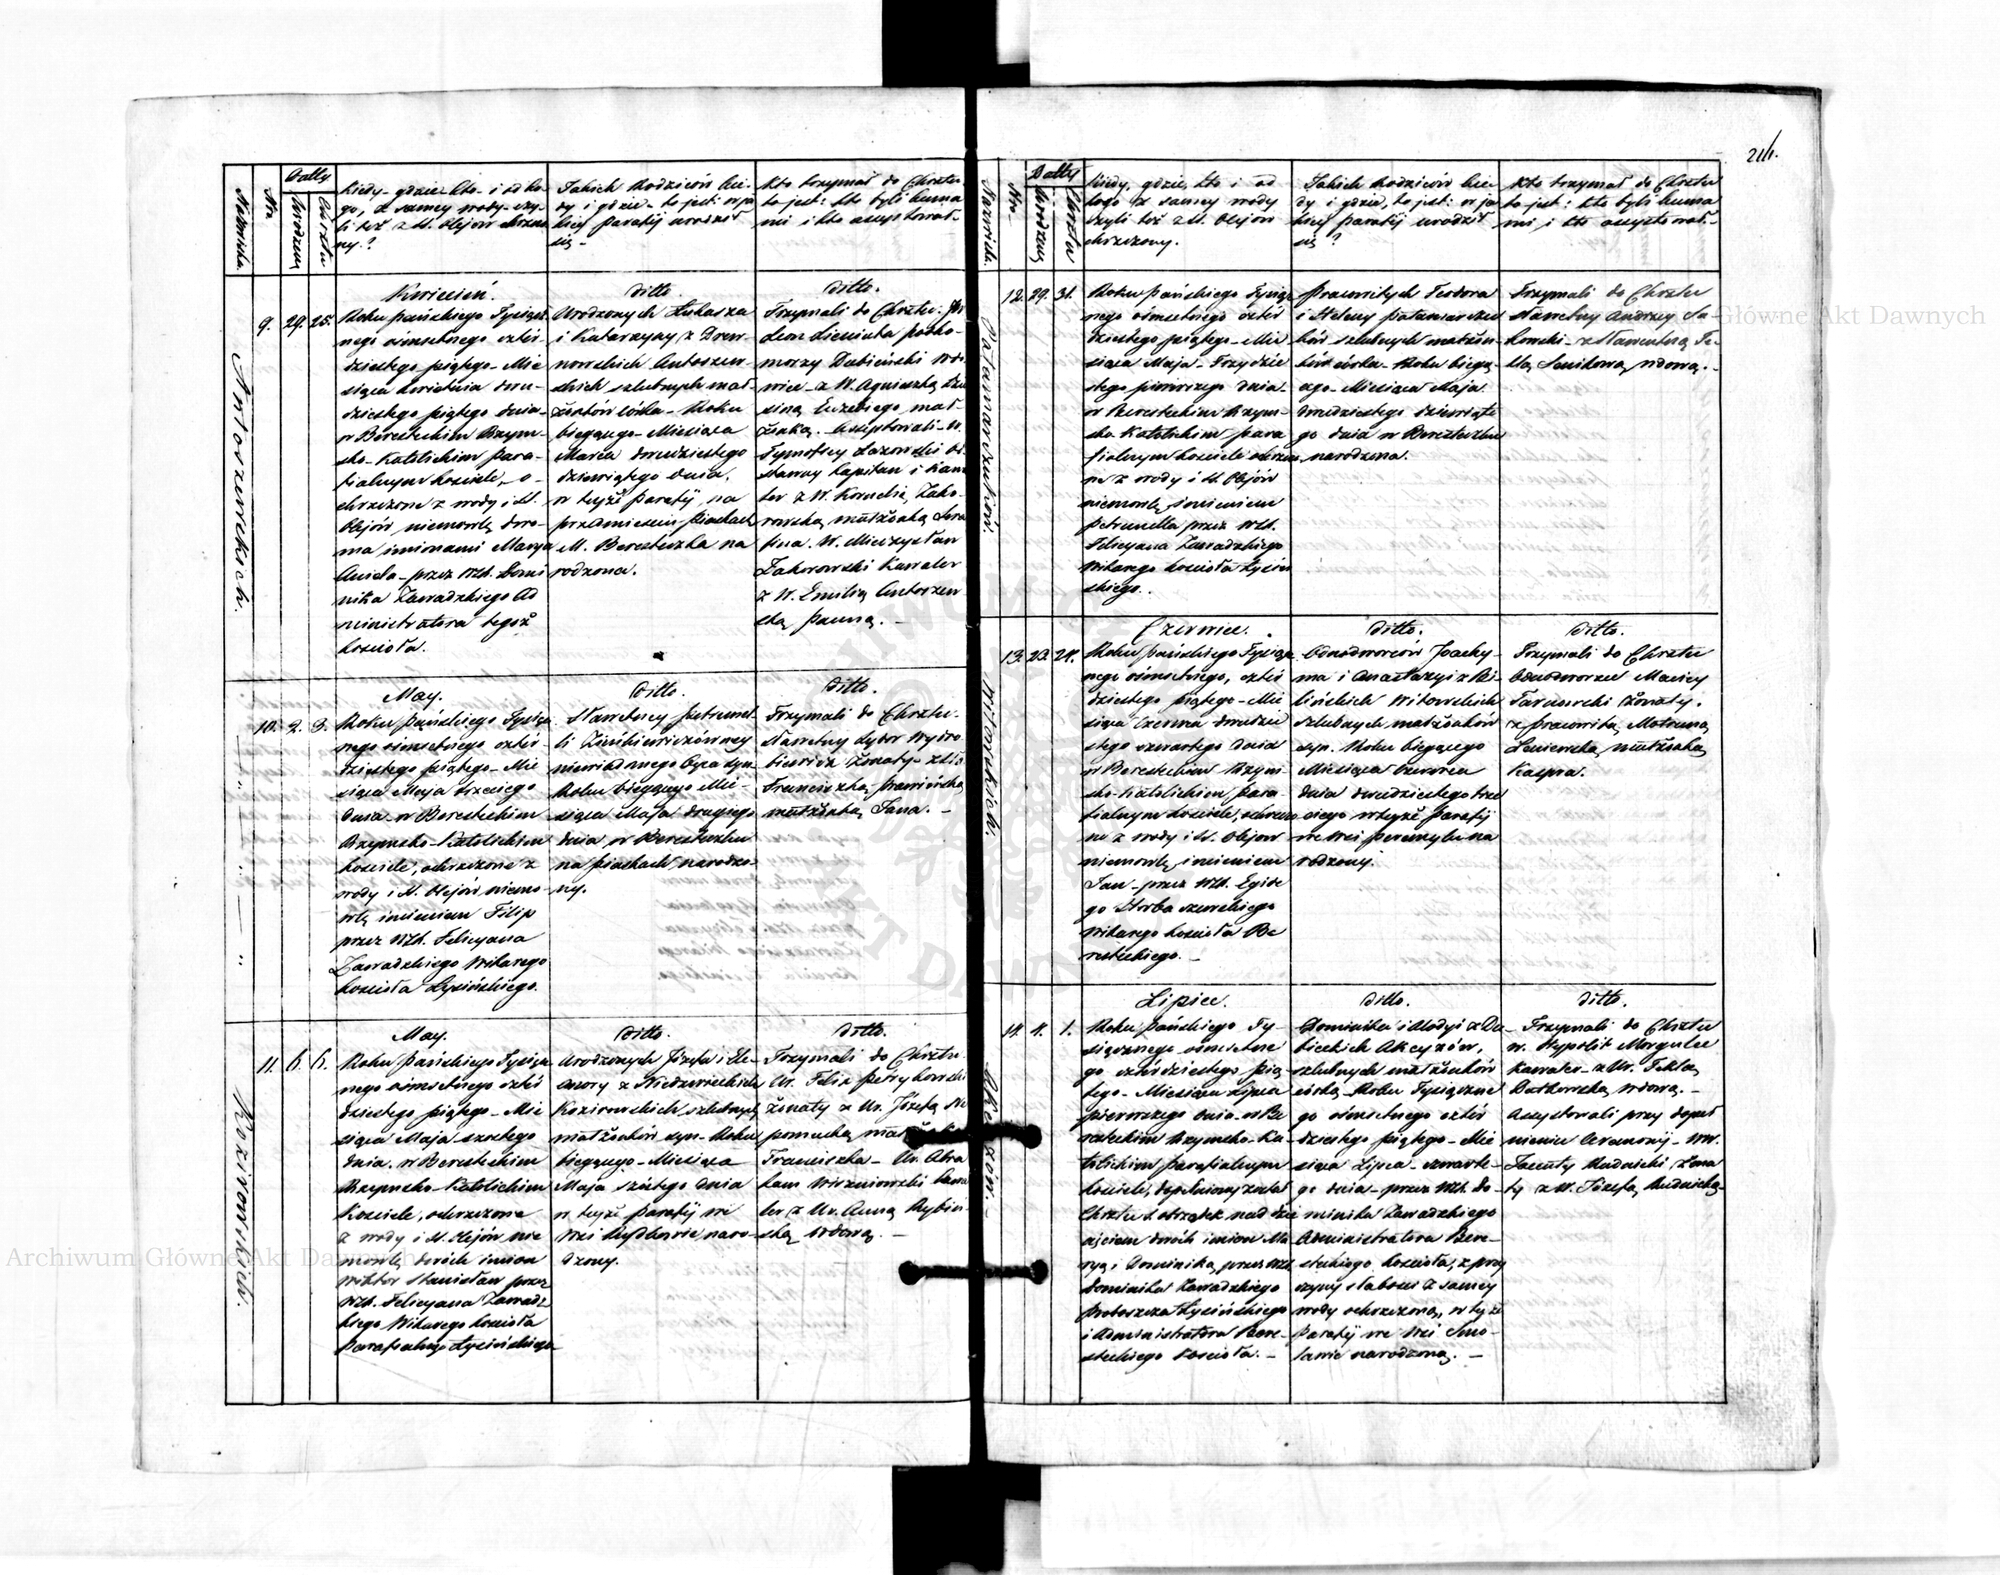 211.
Nazwiska.
Nro
Datty
Urodzeni
Chrztu
Kiedy - gdzie - kto - i od ko-
go, z samey wody - czy-
li też z S. Olejów chrzczo
ny?
Jakich Rodziców kie-
dy i gdzie - to jest: w ja
kiey Parafij urodził
się -
Kto trzymał do Chrztu
to jest: kto byli kuma
mi i kto assystował -
Antoszewskich.
9. 29. 25.
Kwiecień.
Roku Pańskiego Tysiącz
nego osmsetnego czter
dziestego piątego - Mie
siąca Kwietnia dwu-
dziestego piątego dnia -
w Beresteckim Rzym-
sko - Katolickim Para-
fialnym Kościele, - o-
chrzczone z wody i S.
Olejów niemowlę dwo-
ma imionami Marya
Aniela - przez WXd. Domi
nika Zawadzkiego Ad
ministratora tegoż
Kościoła.
Ditto.
Urodzonych Łukasza
i Katarzyny z Drew-
nowskich Antoszew-
skich szlubnych mał-
żonków córka - Roku
bieżącego - Miesiąca
Marca dwudziestego
dziewiątego dnia,
w teyże Parafij, na
przedmieściu Piaskach
M. Beresteczka na
rodzona.
Ditto.
Trzymali do Chrztu:
Leon
morzy Dubieński
z W. Agnieszką
siną Euzebiego mał-
żonką. Assystowali - W.
Tymofiey Łazowski od
stawny Kapitan i Kawa
ler z W. Kornelią Zaho-
rowską małżonką
fina. W. Mieczysław
Zahorowski Kawaler
z W. Emilią Antoszew-
ską Panną. -
10. 2. 3.
May.
Roku Pańskiego Tysiącz
nego osmsetnego czter
dziestego piątego - Mie
siąca Maja trzeciego
dnia - w Beresteckim
Rzymsko - Katolickim
Kościele, ochrzczone z
wody i S. Olejów niemo-
wlę imieniem Filip
przez WXd. Felicyana
Zawadzkiego Wikarego
Kościoła Łysińskiego.
Ditto.
Sławetney Petronel-
li
niewiadomego Oyca syn
Roku bieżącego Mie-
siąca Maja drugiego
dnia, w Beresteczku
na Piaskach narodzo-
ny.
Ditto.
Trzymali do Chrztu -
Sławetny
żonaty - z
Franciszką
małżonką Jana. -
Kozirowskich.
11. 6. 6.
May.
Roku Pańskiego Tysiącz
nego osmsetnego czter
dziestego piątego - Mie
siąca Maja szóstego
dnia - w Beresteckim
Rzymsko - Katolickim
Kościele, ochrzczone
z wody i S. Olejów nie
mowlę dwóch imion
Wiktor Stanisław przez
WXd. Felicyana Zawadz
kiego Wikarego Kościoła
Parafialnego Łysińskiego
Ditto.
Urodzonych Józefa i Ele-
onory z Niedzwieckich
Kozirowskich szlubnych
małżonków syn - Roku
bieżącego - Miesiąca
Maja szóstego dnia
w teyże Parafij we
wsi narodzony.
Ditto.
Trzymali do Chrztu
Ur. Felix Petrykowski
żonaty z Ur. Józefą
Franciszka - Ur. Abra
ham Wiszniowski Kawa
ler z Ur. Anną Rybiń-
ską wdową. -
Nazwiska.
Nro
Datty
Urodzeni
Chrztu
Kiedy, gdzie, kto i od
kogo z samey wody
czyli też z S. Olejów
chrzczony.
Jakich Rodziców kie-
dy i gdzie, to jest: w ja
kiey Parafij urodził
się?
Kto trzymał do Chrztu
to jest: kto byli kuma
mi, i kto assystował. -
Patamarczuków.
12. 29. 31.
Roku Pańskiego Tysiącz
nego osmsetnego czter
dziestego piątego - Mie
siąca Maja - Trzydzie
stego pierwszego dnia -
w Beresteckim Rzym-
sko - Katolickim para
fialnym Kościele ochrzczo
ne z wody i S. Olejów
niemowlę imieniem
Petronella przez WXd.
Felicyana Zawadzkiego
Wikarego Kościoła Łysiń
skiego. -
Pracowitych Teodora
i Heleny Patamarczu
ków szlubnych małżon-
ków córka - Roku bieżą-
cego - Miesiąca Maja
dwudziestego dziewiąte
go dnia w Beresteczku
narodzona.
Trzymali do Chrztu
Sławetny Andrzey Sa
kowski - z Sławetną Te-
klą wdową. -
Witowskich.
13. 23. 24.
Czerwiec.
Roku Pańskiego Tysiącz
nego osmsetnego, czter
dziestego piątego - Mie
siąca Czerwca dwudzie
stego czwartego dnia
w Beresteckim Rzym-
sko - Katolickim Para-
fialnym Kościele, ochrzczo
ne z wody i S. Olejów
niemowlę imieniem
Jan - przez WXd. Egide
go
Wikarego Kościoła Be
resteckiego. -
Ditto.
Odnodworców Joachy-
ma i Anastazyi z Bi-
lińskich Witowskich
szlubnych małżonków
syn. Roku bieżącego
Miesiąca Czerwca
dnia dwudziestego trze
ciego w teyże Parafij
we wsi Peremylu na
rodzony.
Ditto.
Trzymali do Chrztu
Odnodworzec Maciey
Tarnowski żonaty,
z pracowitą Motruną
małżonką
Kaspra.
Akcyzów. -
14. 4. 1.
Lipiec.
Roku Pańskiego Ty-
siącznego osmsetne
go czterdziestego pią
tego - Miesiąca Lipca
pierwszego dnia - w Be
resteckim Rzymsko - Ka-
tolickim parafialnym
Kościele, dopełniony został
Chrztu obrządek nad dzie
cięciem dwóch imion Ma
ryą i Dominiką, przez WXd.
Dominika Zawadzkiego
Proboszcza Łysińskiego
i Administratora Bere-
steckiego Kościoła. -
Ditto.
Dominika i Klodyi z Du
bieckich Akcyzów,
szlubnych małżonków
córką - Roku Tysiączne
go osmsetnego czter
dziestego piątego - Mie
siąca Lipca - czwarte-
go dnia - przez WXd. Do-
minika Zawadzkiego
Administratora Bere-
steckiego Kościoła, z przy
czyny słabości z samey
wody ochrzczoną, w teyże
Parafij we wsi Smo-
lawie narodzoną. -
Ditto.
Trzymali do Chrztu
W. Hypolit Morgulec
Kawaler - z Ur. Teklą
Rutkowską wdową. -
Assystowali przy dopeł
nieniu Ceremonij - WW.
Jacenty Rudnicki, żona
ty z W. Józefą Rudnicką -
Archiwum Główne Akt Dawnych